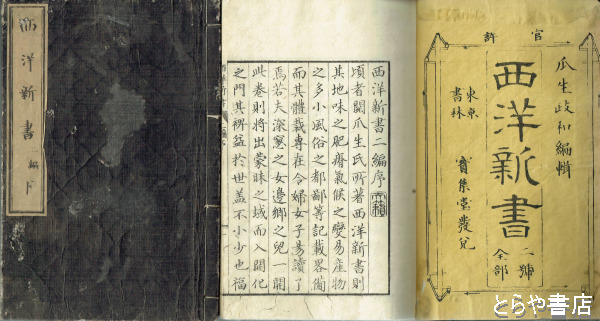 西洋新書 二編 下
西洋新書二編序
頃者閲瓜生氏所著西洋新書則
其地味之肥瘠氣候之變易産物
之多小風俗之都鄙等記載畧備
而其體裁專在令婦女子易讀了
焉若夫深窓之女邊鄉之兒一閲
此卷則將出蒙昧之域而入開化
之門其裨益於世蓋不小少也福
官許
瓜生政和編輯
西洋新書
二號
全部
東京
書林
寳集堂發兌
とらや書店